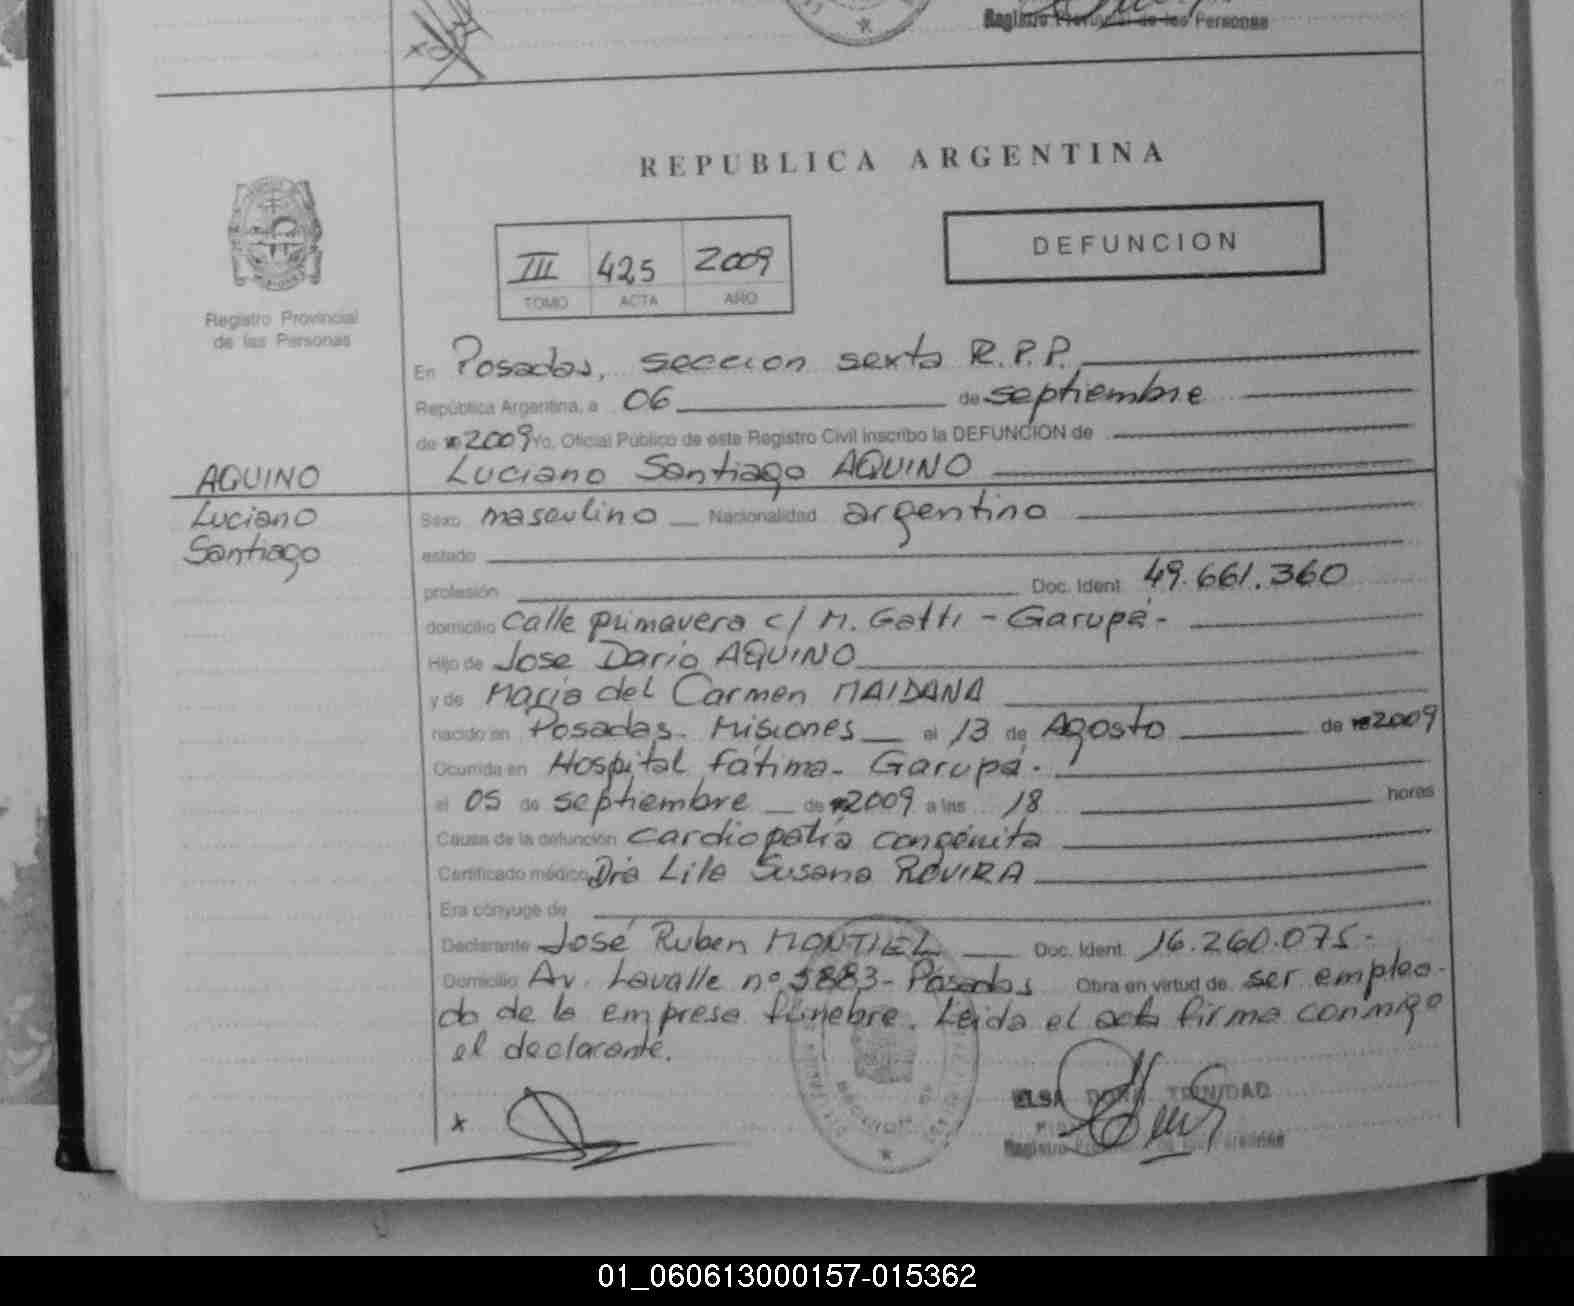 Registro Provincial de las Personas
REPUBLICA ARGENTINA
III 425 2009
TOMO ACTA AÑO
DEFUNCION
Registro Provincial
de las Personas
En Posadas, seccion sexta R.P.P.
República Argentina, a 06 de septiembre
de 2009 Yo, Oficial Público de este Registro Civil inscribo la DEFUNCION de
AQUINO
Luciano
Santiago
Luciano Santiago AQUINO
Sexo masculino Nacionalidad argentino
estado
profesión Doc. Ident. 49.661.360
domicilio calle primavera c/ M. Gatti - Garupá -
Hijo de Jose Dario AQUINO
y de Maria del Carmen MAIDANA
nacido en Posadas. Misiones el 13 de Agosto de 2009
Ocurrida en Hospital fátima - Garupá -
el 05 de septiembre de 2009 a las 18 horas
Causa de la defunción cardiopatía congénita
Certificado médico Dra Lila Susana ROVIRA
Era cónyuge de
Declarante José Ruben MONTIEL Doc. Ident. 16.260.075 -
Domicilio Av. Lavalle nº 3883 - Posadas Obra en virtud de ser emplea-
do de la empresa fúnebre. Leida el acta firma conmigo
el declarante.
x
ELSA TRINIDAD
Registro
01_060613000157-015362